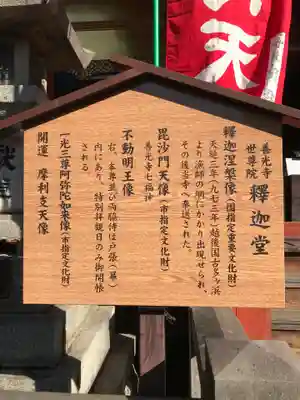 善光寺
世尊院
釋迦堂
釋迦涅槃像(国指定重要文化財)
天延元年(九七三年)越後国古多ヶ浜
より漁師の網にかかり出現せられ、
その後当寺へ奉送された。
毘沙門天像(市指定文化財)
善光寺七福神
不動明王像
右、本尊並び両脇侍は戸張(幕)
内にあり、特別拝観日のみ御開帳
される。
一光三尊阿弥陀如来像(市指定文化財)
開運 摩利支天像
天